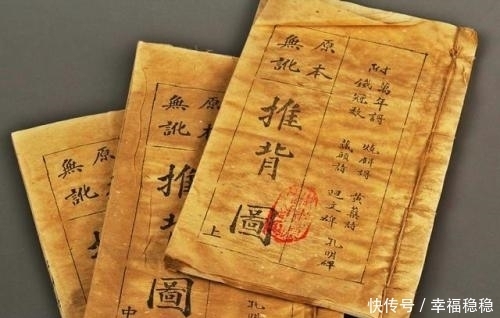 原本
無訛
推背圖
上
附萬年譜 燒餅詩 黃蘗詩
鐵冠數 藏頭詩
孔明碑
原
無訛
推
圖
中
原本
無訛
快传号 / 幸福稳稳